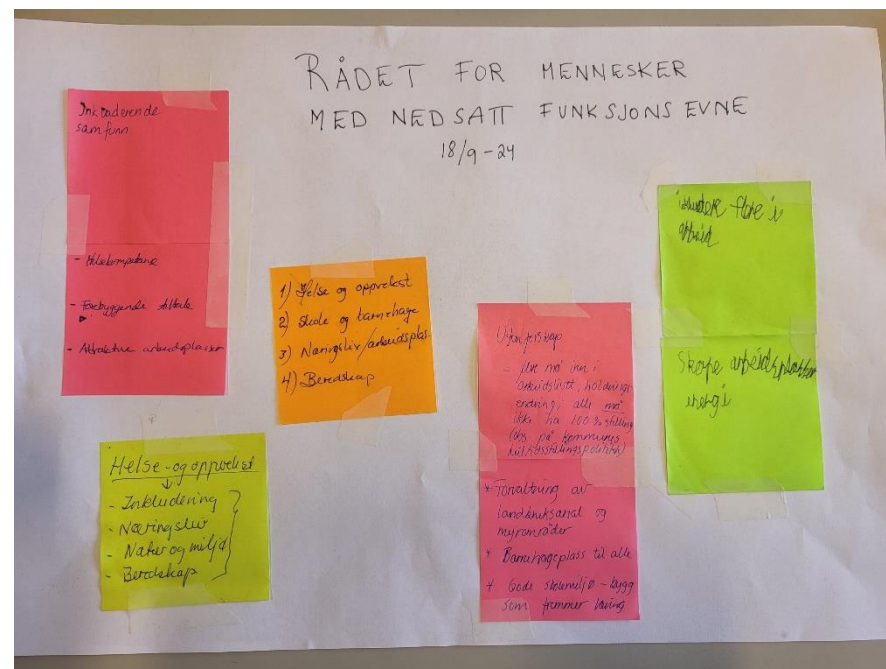 RÅDET FOR MENNESKER
MED NEDSATT FUNKSJONS EVNE
18/9-24
Inkluderende
samfunn
- Helsekompetanse
- Forebyggende tiltak
- Attraktive arbeidsplasser
1) Helse og oppvekst
2) Skole og barnehage
3) Næringsliv/arbeidsplas.
4) Beredskap
Helse-og oppvekst
- Inkludering
- Næringsliv
- Natur og miljø
- Beredskap
Utenforskap
- flere må inn i
arbeidslivet, holdnings-
endring; alle må
ikke ha 100% stilling
(obs på kommunens
heltidsstillingspolitikk)
* Forvaltning av
landbruksareal og
myrområder
* Barnehageplass til alle
* Gode skolemiljø - bygg
som fremmer læring
inkludere flere i
arbeid
Skape arbeidsplasser
energi